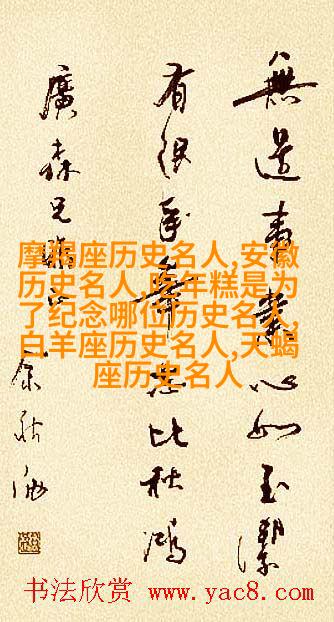 無邊心如玉潔
有志比秋鴻
廣森兄
余秋雨
摩羯座历史名人,安徽
历史名人,吃年糕是为
了纪念哪位历史名人,
白羊座历史名人,天蝎
座历史名人
书法欣赏 www.yac8.com